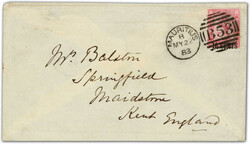 MAURITIUS
B
MY 2
83
B53
Mr. Balston
Springfield
Maidstone
Kent England